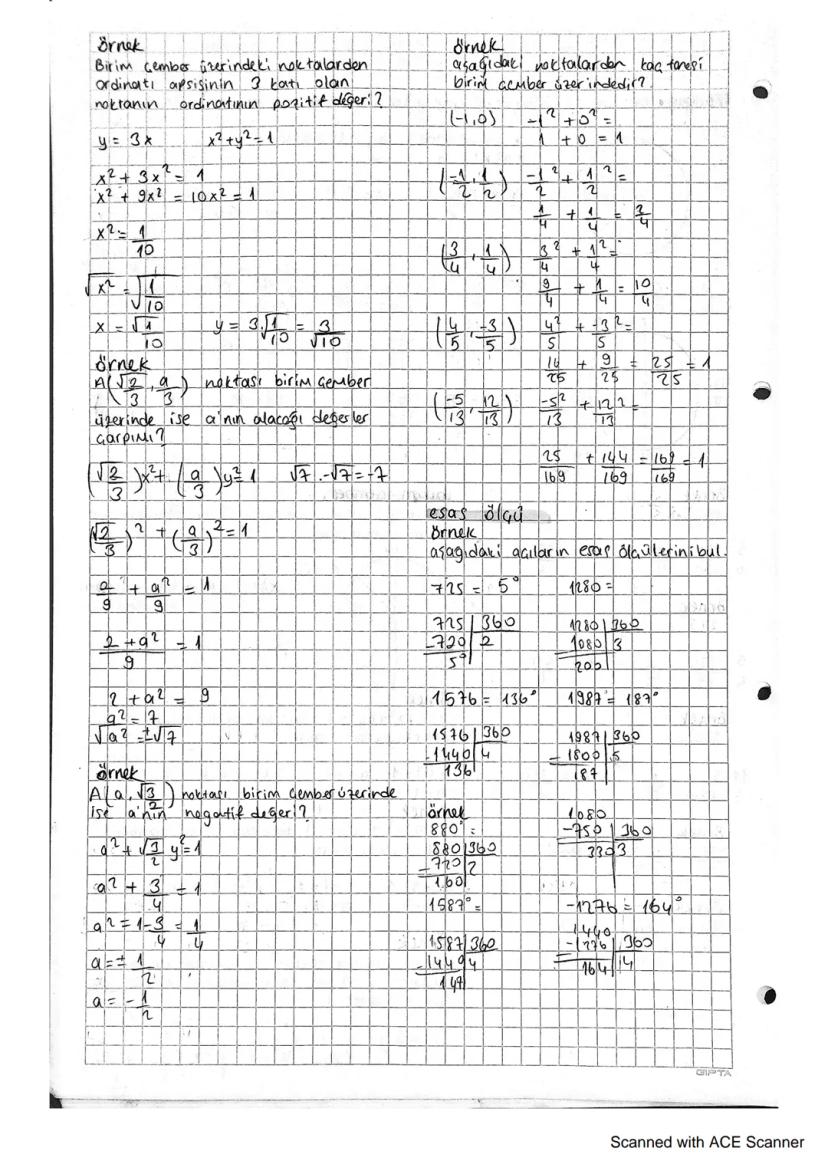 örnek
Birim çember üzerindeki noktalardan
ordinatı apsisinin 3 katı olan
noktanın ordinatının pozitif değeri?
y = 3x x²+y²=1
x² + 3x² = 1
x² + 9x² = 10x² = 1
x² = 1/10
√x² = √1/10
x = √1/10 y = 3.√1/10 = 3/√10
örnek
A(√2/3, a/3) noktası birim çember
üzerinde ise a'nın alacağı değerler
çarpımı?
(√2/3)x²+ (a/3)y²=1 √7 . -√7 = -7
(√2/3)² + (a/3)² = 1
2/9 + a²/9 = 1
2 + a²/9 = 1
2 + a² = 9
a² = 7
√a² = ±√7
örnek
A(a, √3/2) noktası birim çember üzerinde
ise a'nın negatif değeri?
a² + √3/2 y²=1
a² + 3/4 = 1
a² = 1-3/4 = 1/4
a = ± 1/2
a = - 1/2
örnek
aşağıdaki noktalardan kaç tanesi
birim çember üzerindedir?
(-1,0) -1² + 0² =
1 + 0 = 1
(-1/2, 1/2) -1/2² + 1/2² =
1/4 + 1/4 = 2/4
(3/4, 1/4) 3²/4 + 1²/4 =
9/4 + 1/4 = 10/4
(4/5, -3/5) 4²/5 + -3²/5 =
16/25 + 9/25 = 25/25 = 1
(-5/13, 12/13) -5²/13 + 12²/13 =
25/169 + 144/169 = 169/169 = 1
esas ölçü
örnek
aşağıdaki açıların esas ölçülerini bul.
725 = 5° 1280 =
725 | 360 1280 | 360
-720 | 2 1080 | 3
5° 200
1576 = 136° 1987 = 187°
1576 | 360 1987 | 360
-1440 | 4 -1800 | 5
136 187
örnek
880° =
880 | 360
-720 | 2
160
1587° =
1587 | 360
-1440 | 4
147
1080
-750 | 360
330 3
-1276 = 164°
1440
-1276 | 360
164 | 4
GIPTA
Scanned with ACE Scanner